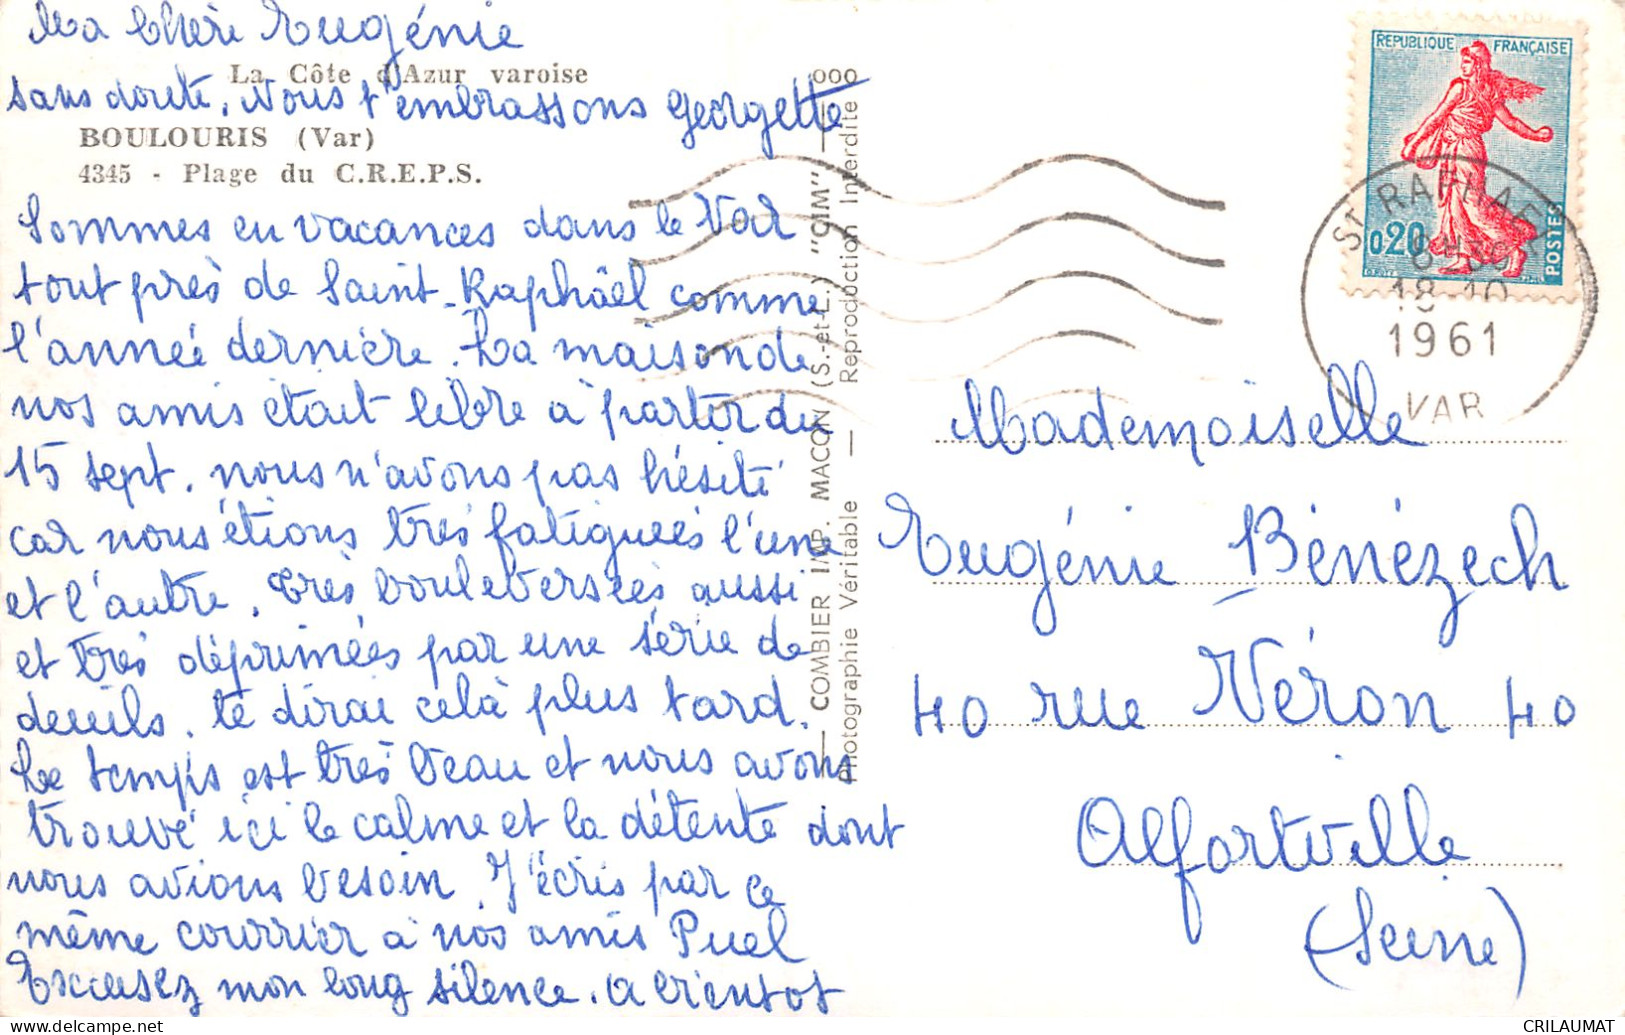 Ma Chère Eugénie
La Côte d'Azur varoise
sans doute. Nous t'embrassons Georgette
BOULOURIS (Var)
4345 - Plage du C.R.E.P.S.
Sommes en vacances dans le Var
tout près de Saint-Raphaël comme
l'année dernière. La maison de
nos amis était libre à partir du
15 sept. nous n'avons pas hésité
car nous étions très fatiguées l'une
et l'autre. très bouleversées aussi
et très déprimées par une série de
deuils. te dirai celà plus tard.
Le temps est très beau et nous avons
trouvé ici le calme et la détente dont
nous avions besoin. J'écris par ce
même courrier à nos amis Puel
Excusez mon long silence. a bientot
— COMBIER IMP. MACON (S.-et-L.) "CIM" —
Photographie Véritable — Reproduction Interdite
000
REPUBLIQUE FRANÇAISE
0,20
POSTES
ST RAPHAEL
18-10
1961
VAR
Mademoiselle
Eugénie Bénézech
40 rue Véron 40
Alfortville
(Seine)
CRILAUMAT